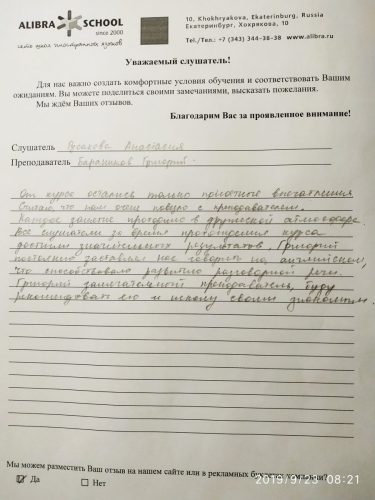 ALIBRA SCHOOL
since 2000
сеть школ иностранных языков
10, Khokhryakova, Ekaterinburg, Russia
Екатеринбург, Хохрякова, 10
Tel./Тел.: +7 (343) 344-38-38 www.alibra.ru
Уважаемый слушатель!
Для нас важно создать комфортные условия обучения и соответствовать Вашим
ожиданиям. Вы можете поделиться своими замечаниями, высказать пожелания.
Мы ждём Ваших отзывов.
Благодарим Вас за проявленное внимание!
Слушатель Русакова Анастасия
Преподаватель Баранников Григорий
От курса остались только приятные впечатления
Считаю, что нам очень повезло с преподавателем.
Каждое занятие проходило в дружеской атмосфере.
Все слушатели за время прохождения курса
достигли значительных результатов. Григорий
постоянно заставлял нас говорить на английском,
что способствовало развитию разговорной речи.
Григорий замечательный преподаватель, буду
рекомендовать его и школу своим знакомым.
Мы можем разместить Ваш отзыв на нашем сайте или в рекламных буклетах компании?
Да
Нет
2019/9/23 08:21